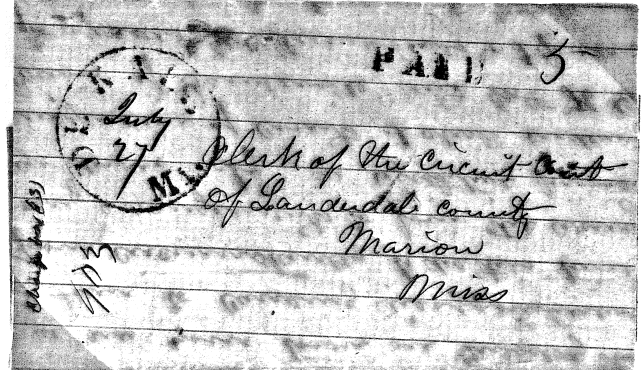 PAID 3
DE KALB
July
27
Mi.
Clerk of the Circuit Court
of Lauderdale county
Marion
Miss